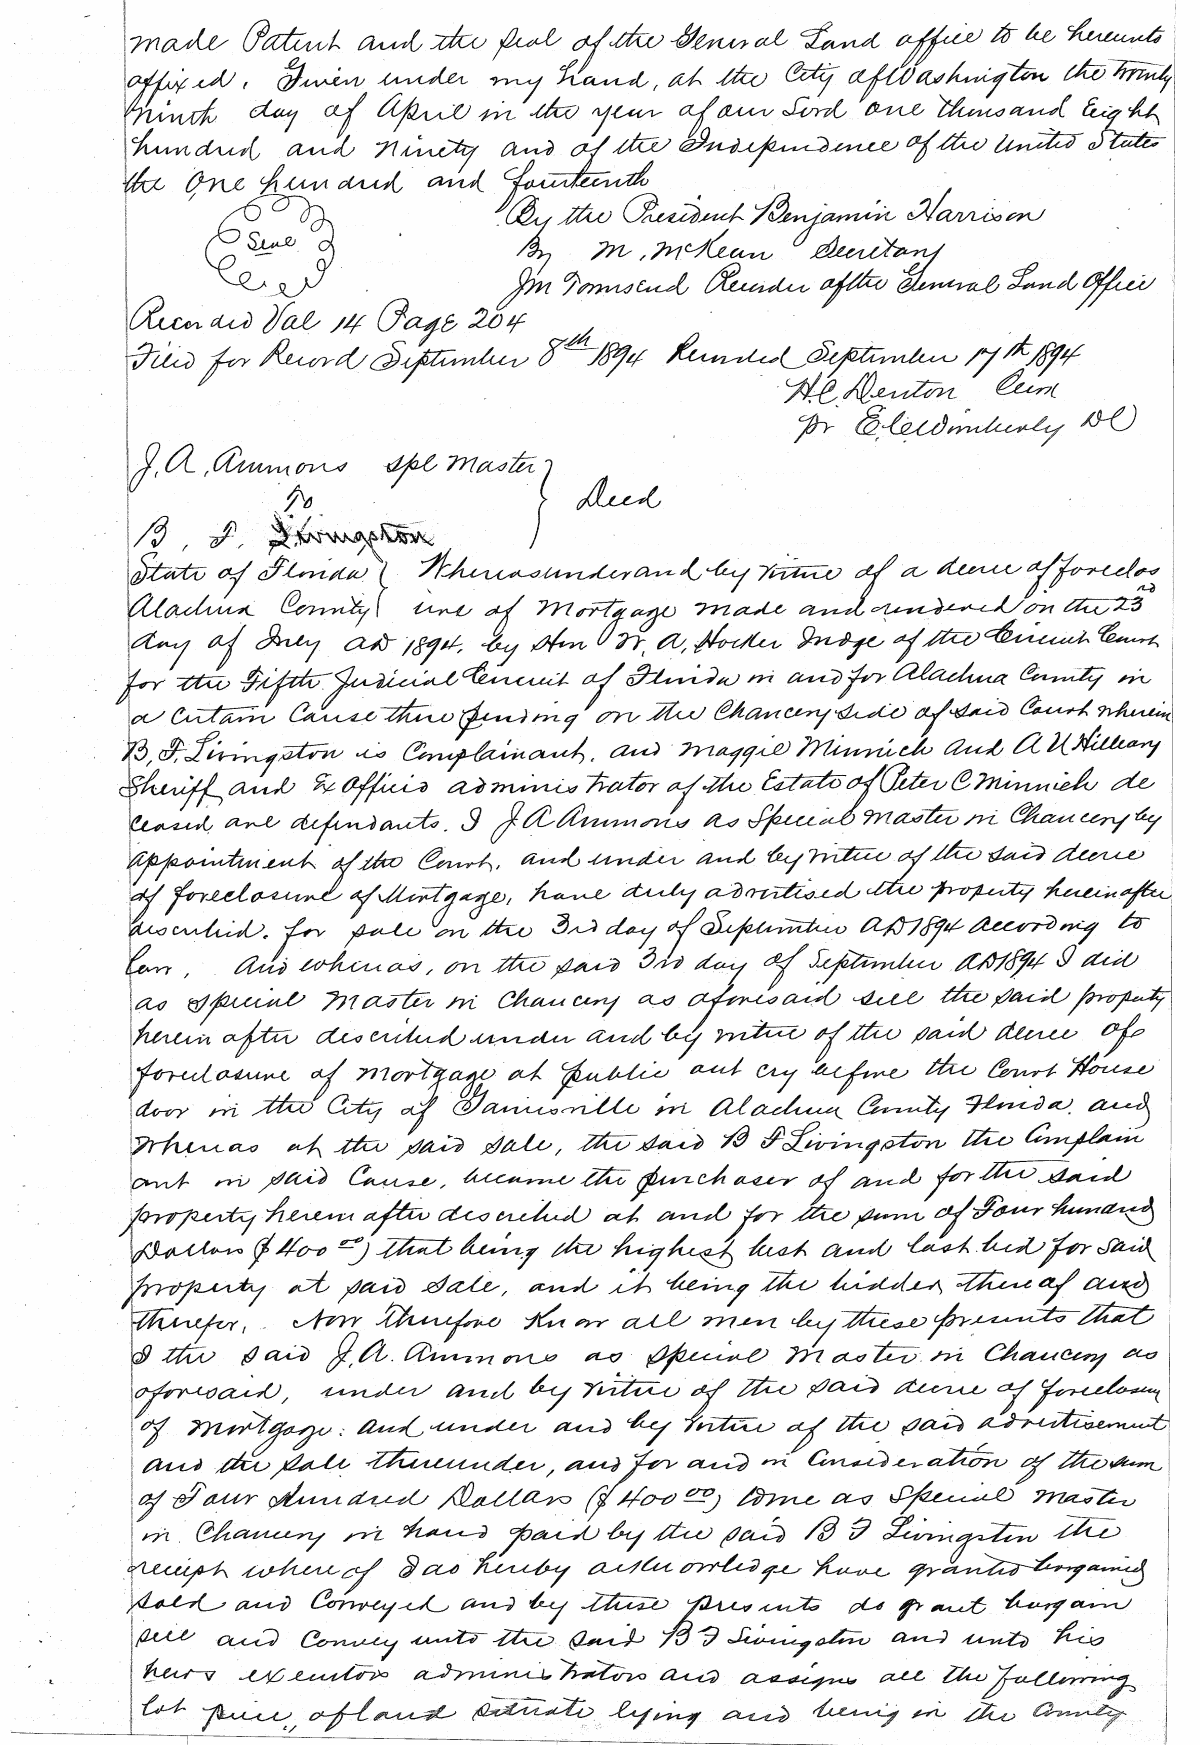 made Patent and the Seal of the General Land office to be hereunto
affixed. Given under my hand, at the City of Washington the twenty
ninth day of April in the year of our Lord one thousand Eight
hundred and Ninety and of the Independence of the United States
the One hundred and fourteenth
By the President Benjamin Harrison
Seal
By M. McKean Secretary
JM Townsend Recorder of the General Land Office
Recorded Vol 14 Page 204
Filed for Record September 8th 1894 Recorded September 17th 1894
H.C. Denton Clerk
pr E.C. Wimberly DC
J. A. Ammons spl Master
To
Deed
B. F. Livingston
State of Florida Whereas under and by virtue of a decree of foreclos
Alachua County ure of Mortgage made and rendered on the 23rd
day of July AD 1894. by Hon W. A. Hocker Judge of the Circuit Court
for the Fifth Judicial Circuit of Florida in and for Alachua County in
a certain Cause there pending on the Chancery side of said Court wherein
B. F. Livingston is Complainant. and Maggie Minnich and A U Hilleary
Sheriff and Ex Officio administrator of the Estate of Peter C Minnich de
ceased are defendants. I J A Ammons as Special Master in Chancery by
appointment of the Court. and under and by virtue of the said decree
of foreclosure of Mortgage, have duly advertised the property herein after
described. for sale on the 3rd day of September AD 1894 According to
law, And whereas, on the said 3rd day of September AD 1894 I did
as special Master in Chancery as aforesaid sell the said property
herein after described under and by virtue of the said decree of
foreclosure of Mortgage at public out cry before the Court House
door in the City of Gainesville in Alachua County Florida. and
whereas at the said sale, the said B F Livingston the Complain
ant in said Cause, became the purchaser of and for the said
property herein after described at and for the sum of Four hundred
Dollars ($400 00) that being the highest best and last bid for said
property at said sale, and it being the bidder thereof and
therefor,. Now therefore Know all men by these presents that
I the said J. A. Ammons as special Master in Chancery as
aforesaid, under and by virtue of the said decree of foreclosure
of Mortgage: and under and by virtue of the said advertisement
and the sale thereunder, and for and in Consideration of the sum
of Four Hundred Dollars ($400 00) to me as special Master
in Chancery in hand paid by the said B F Livingston the
receipt where of I do hereby acknowledge have granted bargained
sold and Conveyed and by these presents do grant bargain
sell and Convey unto the said B F Livingston and unto his
heirs executors administrators and assigns all the following
lot piece, of land situate lying and being in the County